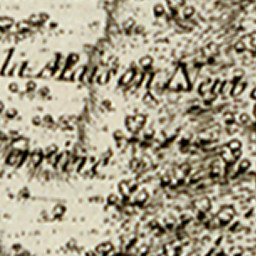 la Maison Neuve
erriere